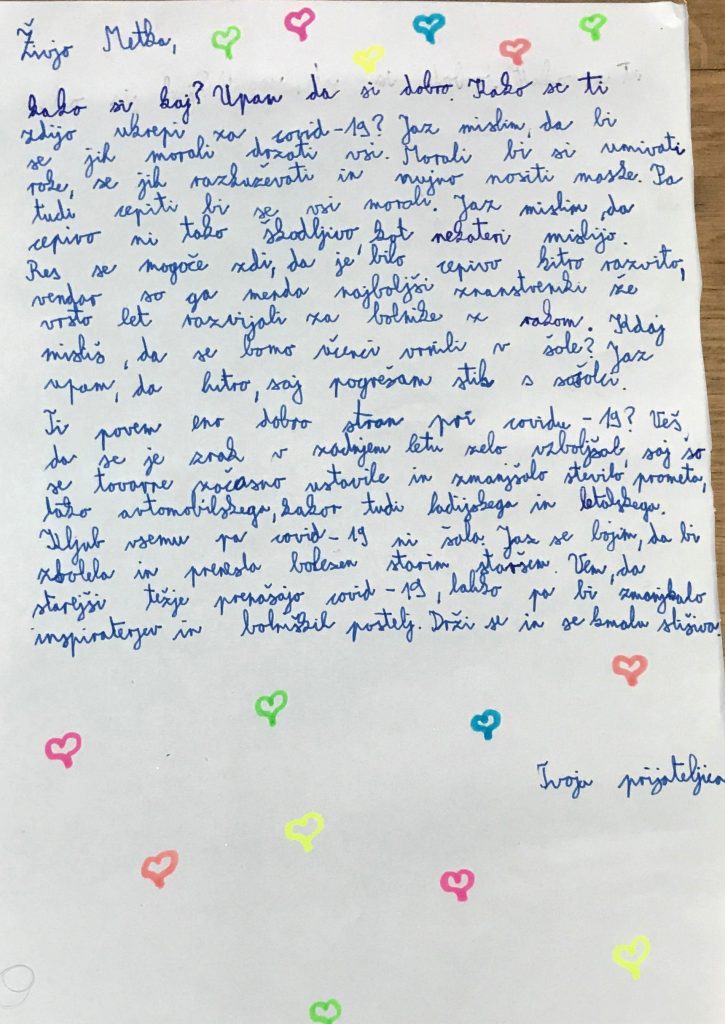 Živjo Metka,
kako si kaj? Upam da si dobro. Kako se ti
zdijo ukrepi za covid-19? Jaz mislim, da bi
se jih morali držati vsi. Morali bi si umivati
roke, se jih razkuževati in nujno nositi maske. Pa
tudi cepiti bi se vsi morali. Jaz mislim, da
cepivo ni tako škodljivo, kot nekateri mislijo.
Res se mogoče zdi, da je bilo cepivo hitro razvito,
vendar so ga menda najboljši znanstveniki že
vrsto let razvijali za bolnike z rakom. Kdaj
misliš, da se bomo učenci vrnili v šole? Jaz
upam, da hitro, saj pogrešam stik s sošolci.
Ti povem eno dobro stran pri covidu-19? Veš,
da se je zrak v zadnjem letu zelo vzboljšal, saj so
se tovarne začasno ustavile in zmanjšalo število prometa,
tako avtomobilskega, kakor tudi ladijskega in letalskega.
Kljub vsemu pa covid-19 ni šala. Jaz se bojim, da bi
zbolela in prenesla bolezen starim staršem. Vem, da
starejši težje prenašajo covid-19, lahko pa bi zmanjkalo
inspiraterjev in bolniških postelj. Drži se in se kmalu slišiva.
Tvoja prijateljica